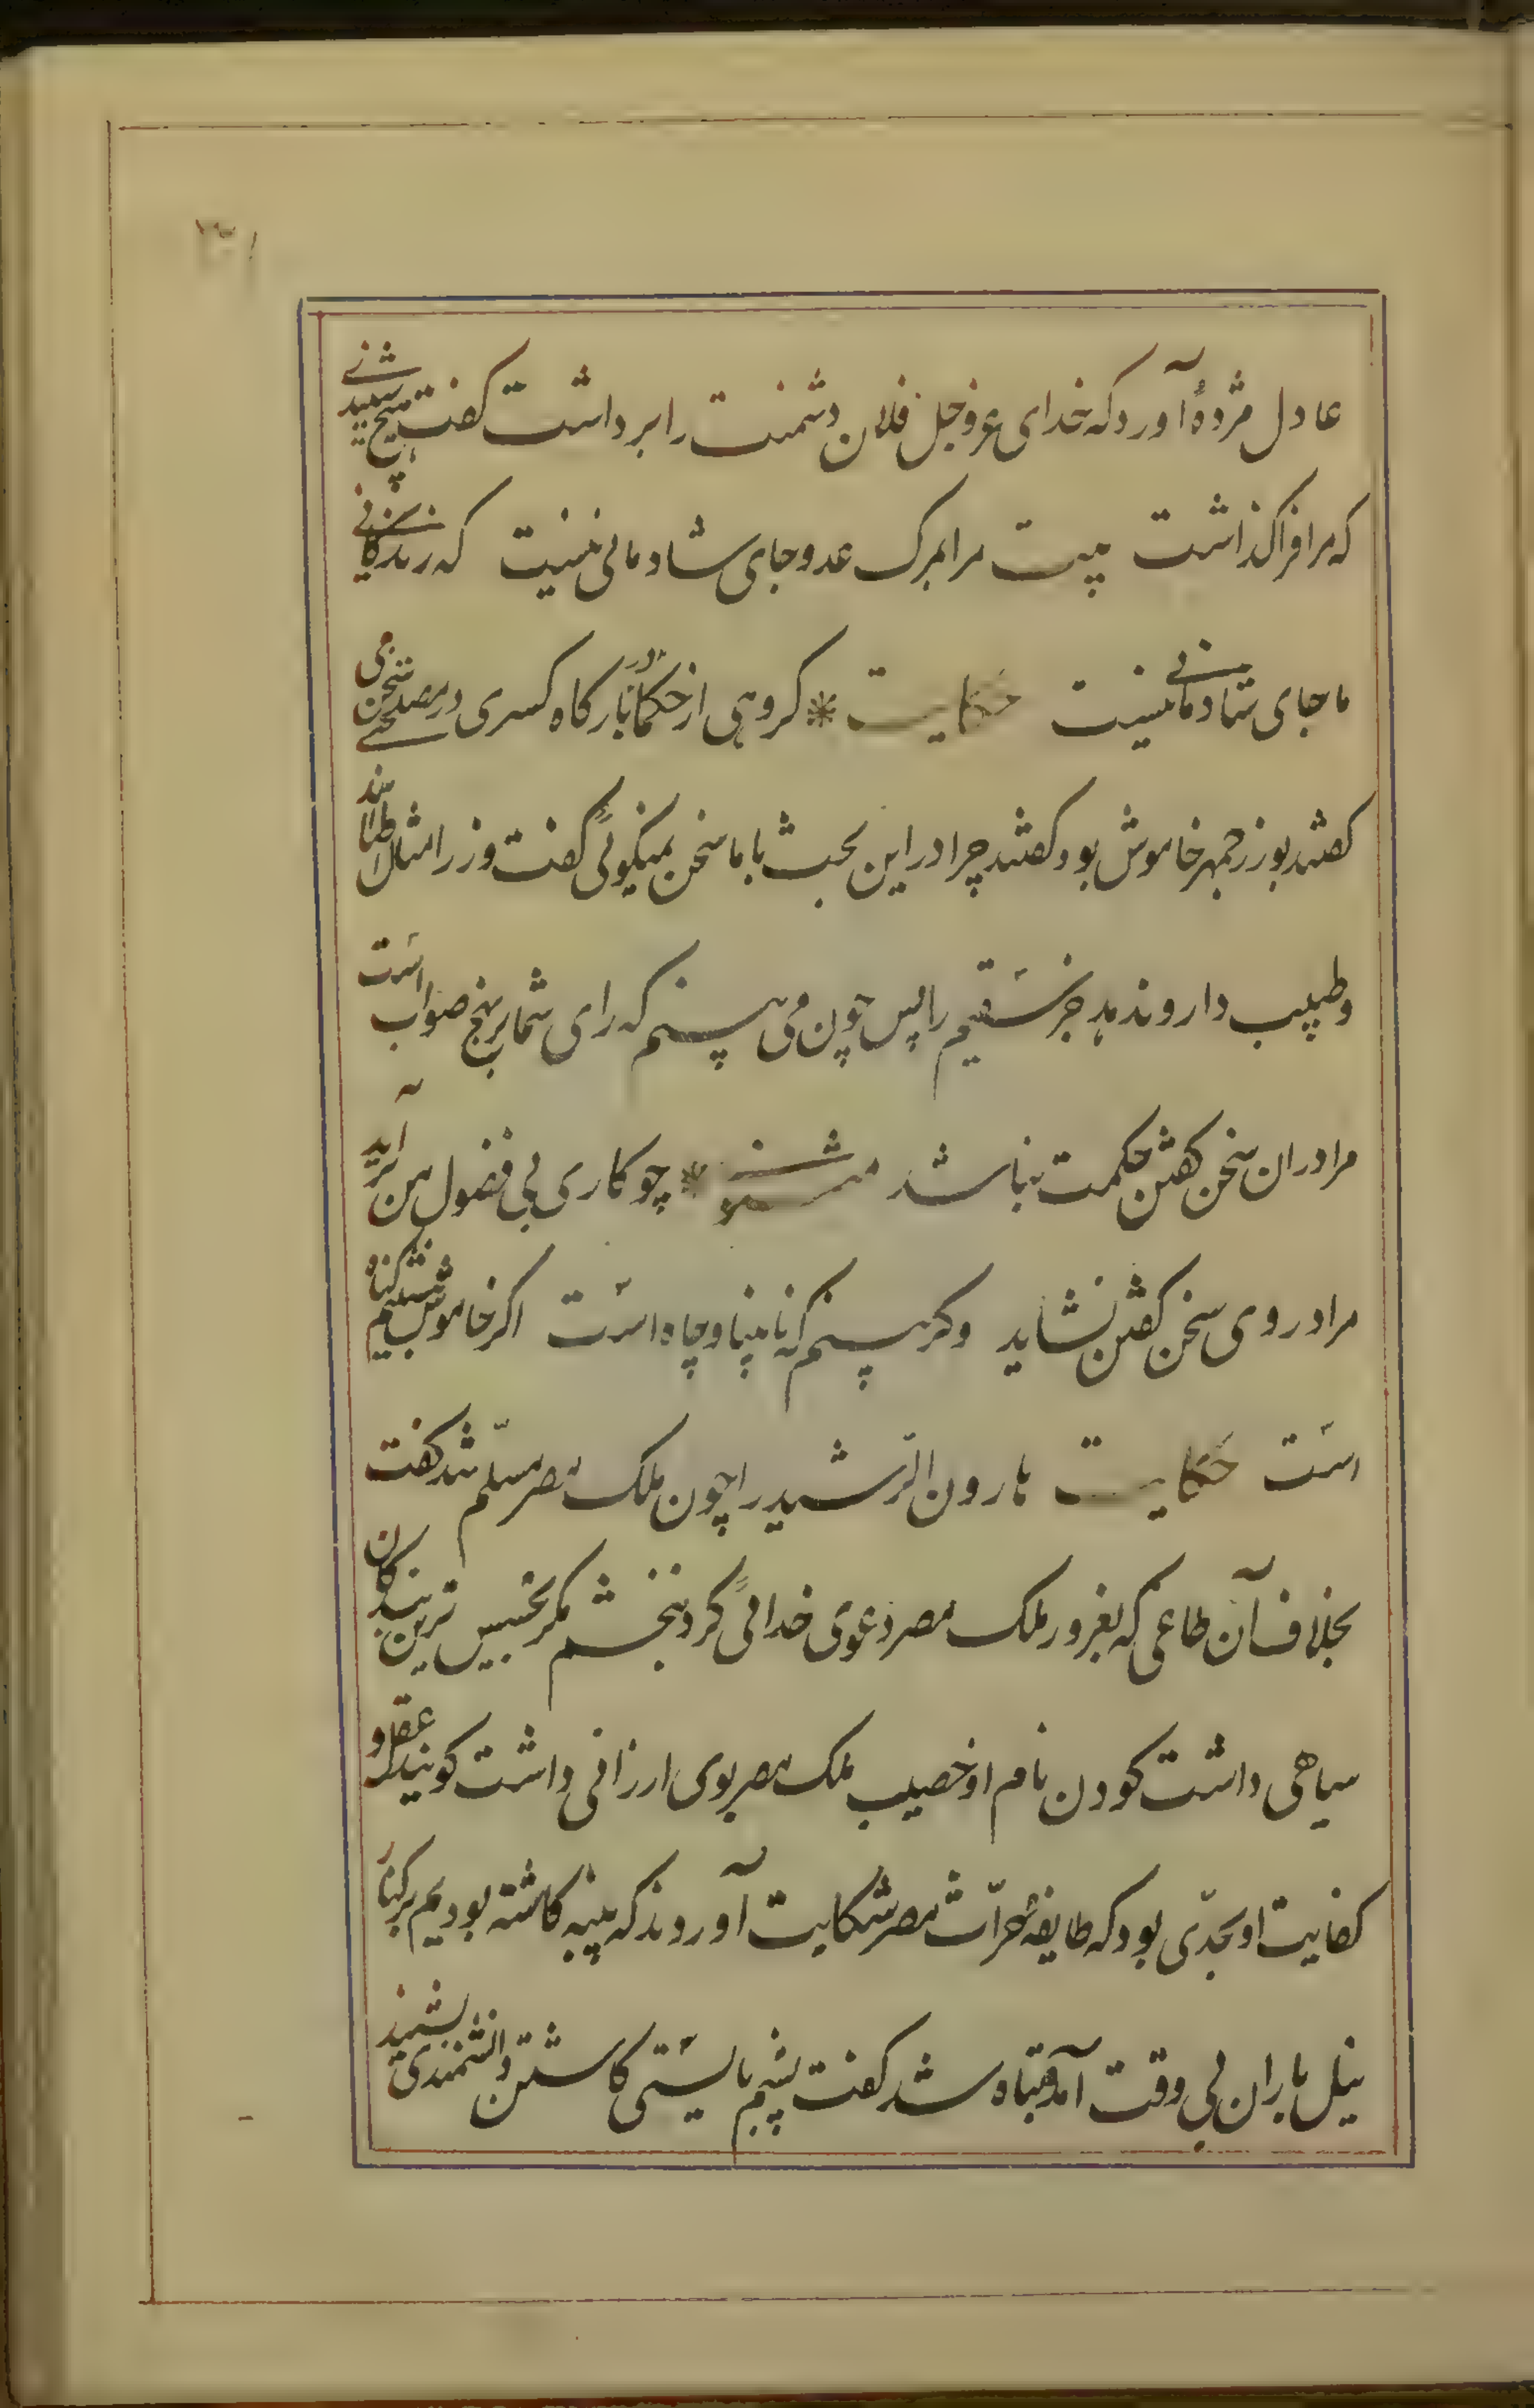 عادل مژدهٔ آورد که خدای عزوجل فلان دشمنت را برداشت کفت هیچ شنیدی
که مرا فرا کذاشت بیت مرا بمرک عدو جای شادمانی نیست که زندکانی
ما جای شادمانی نیست حکایت کروهی از حکما در بارکاه کسری در مصلحتی سخن می
کفتند بوزرجمهر خاموش بود کفتند چرا در این بحث با ما سخن نمیکوئی کفت وزرا مثال اطبااند
و طبیب دارو ندهد جز سقیم را پس چون می بینم که رای شما بر نهج صواب است
مرا در ان سخن کفتن حکمت نباشد مثنوی چو کاری بی فضول من بر آید
مرا در وی سخن کفتن نشاید وکر بینم که نابینا و چاه است اکر خاموش بنشینم کناه
است حکایت هارون الرّشید را چون ملک مصر مسلّم شد کفت
بخلاف آن طاعی که بغرور ملک مصر دعوی خدائی کرد نبخشم مکر بخسیس ترین بندکان
سیاهی داشت کودن نام او خصیب ملک مصر بوی ارزانی داشت کویند عقل و
کفایت او بحدّی بود که طایفهٔ حرّاث مصر شکایت آوردند که پنبه کاشته بودیم بر کنار
نیل باران بی وقت آمد و تباه شد کفت پشم بایستی کاشتن دانشمندی بشنید